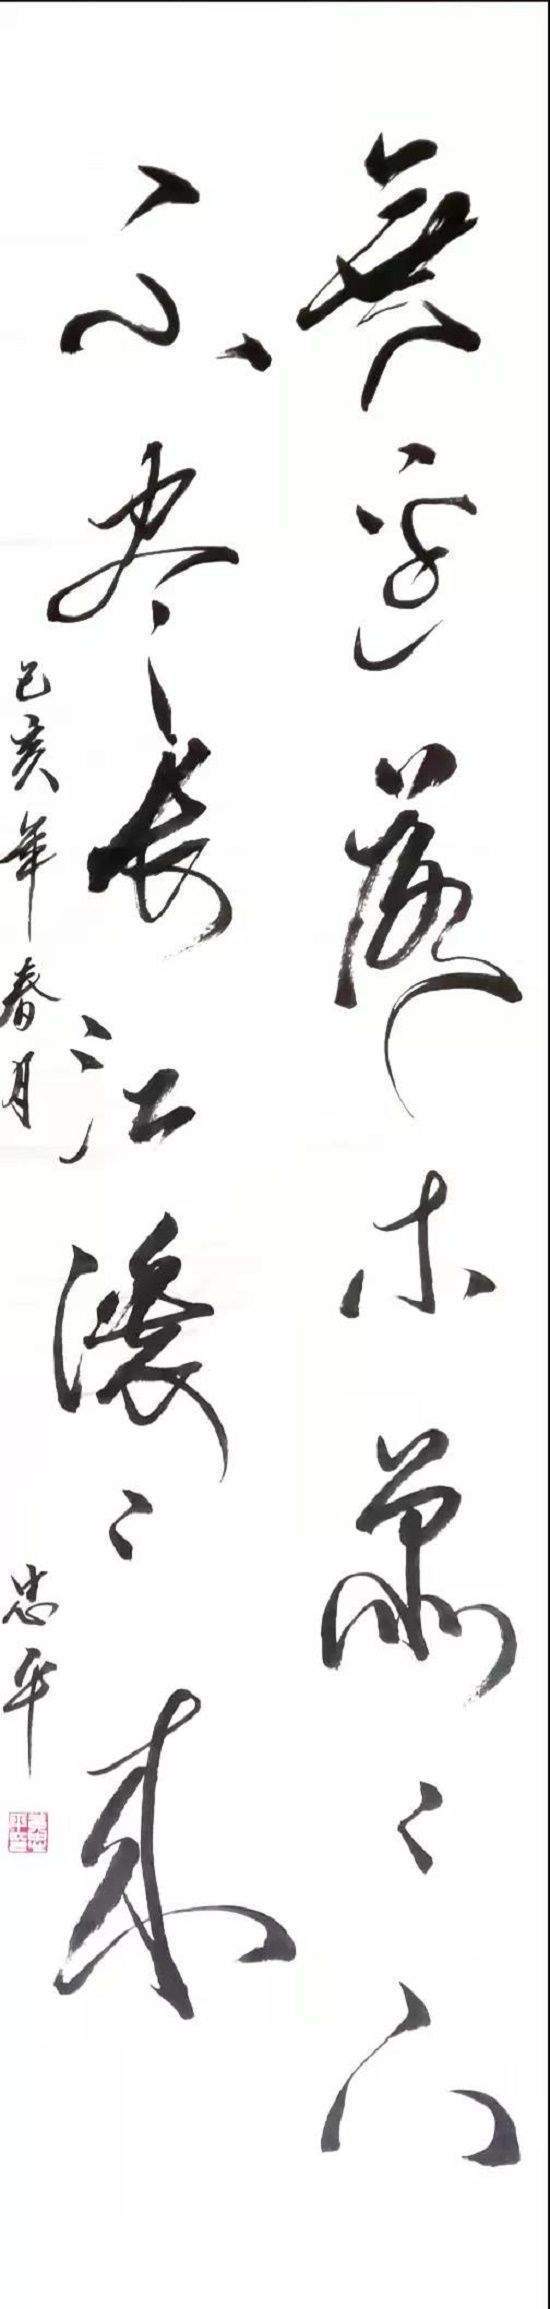 無邊落木蕭〻下
不尽長江滚〻来
己亥年春月 忠平